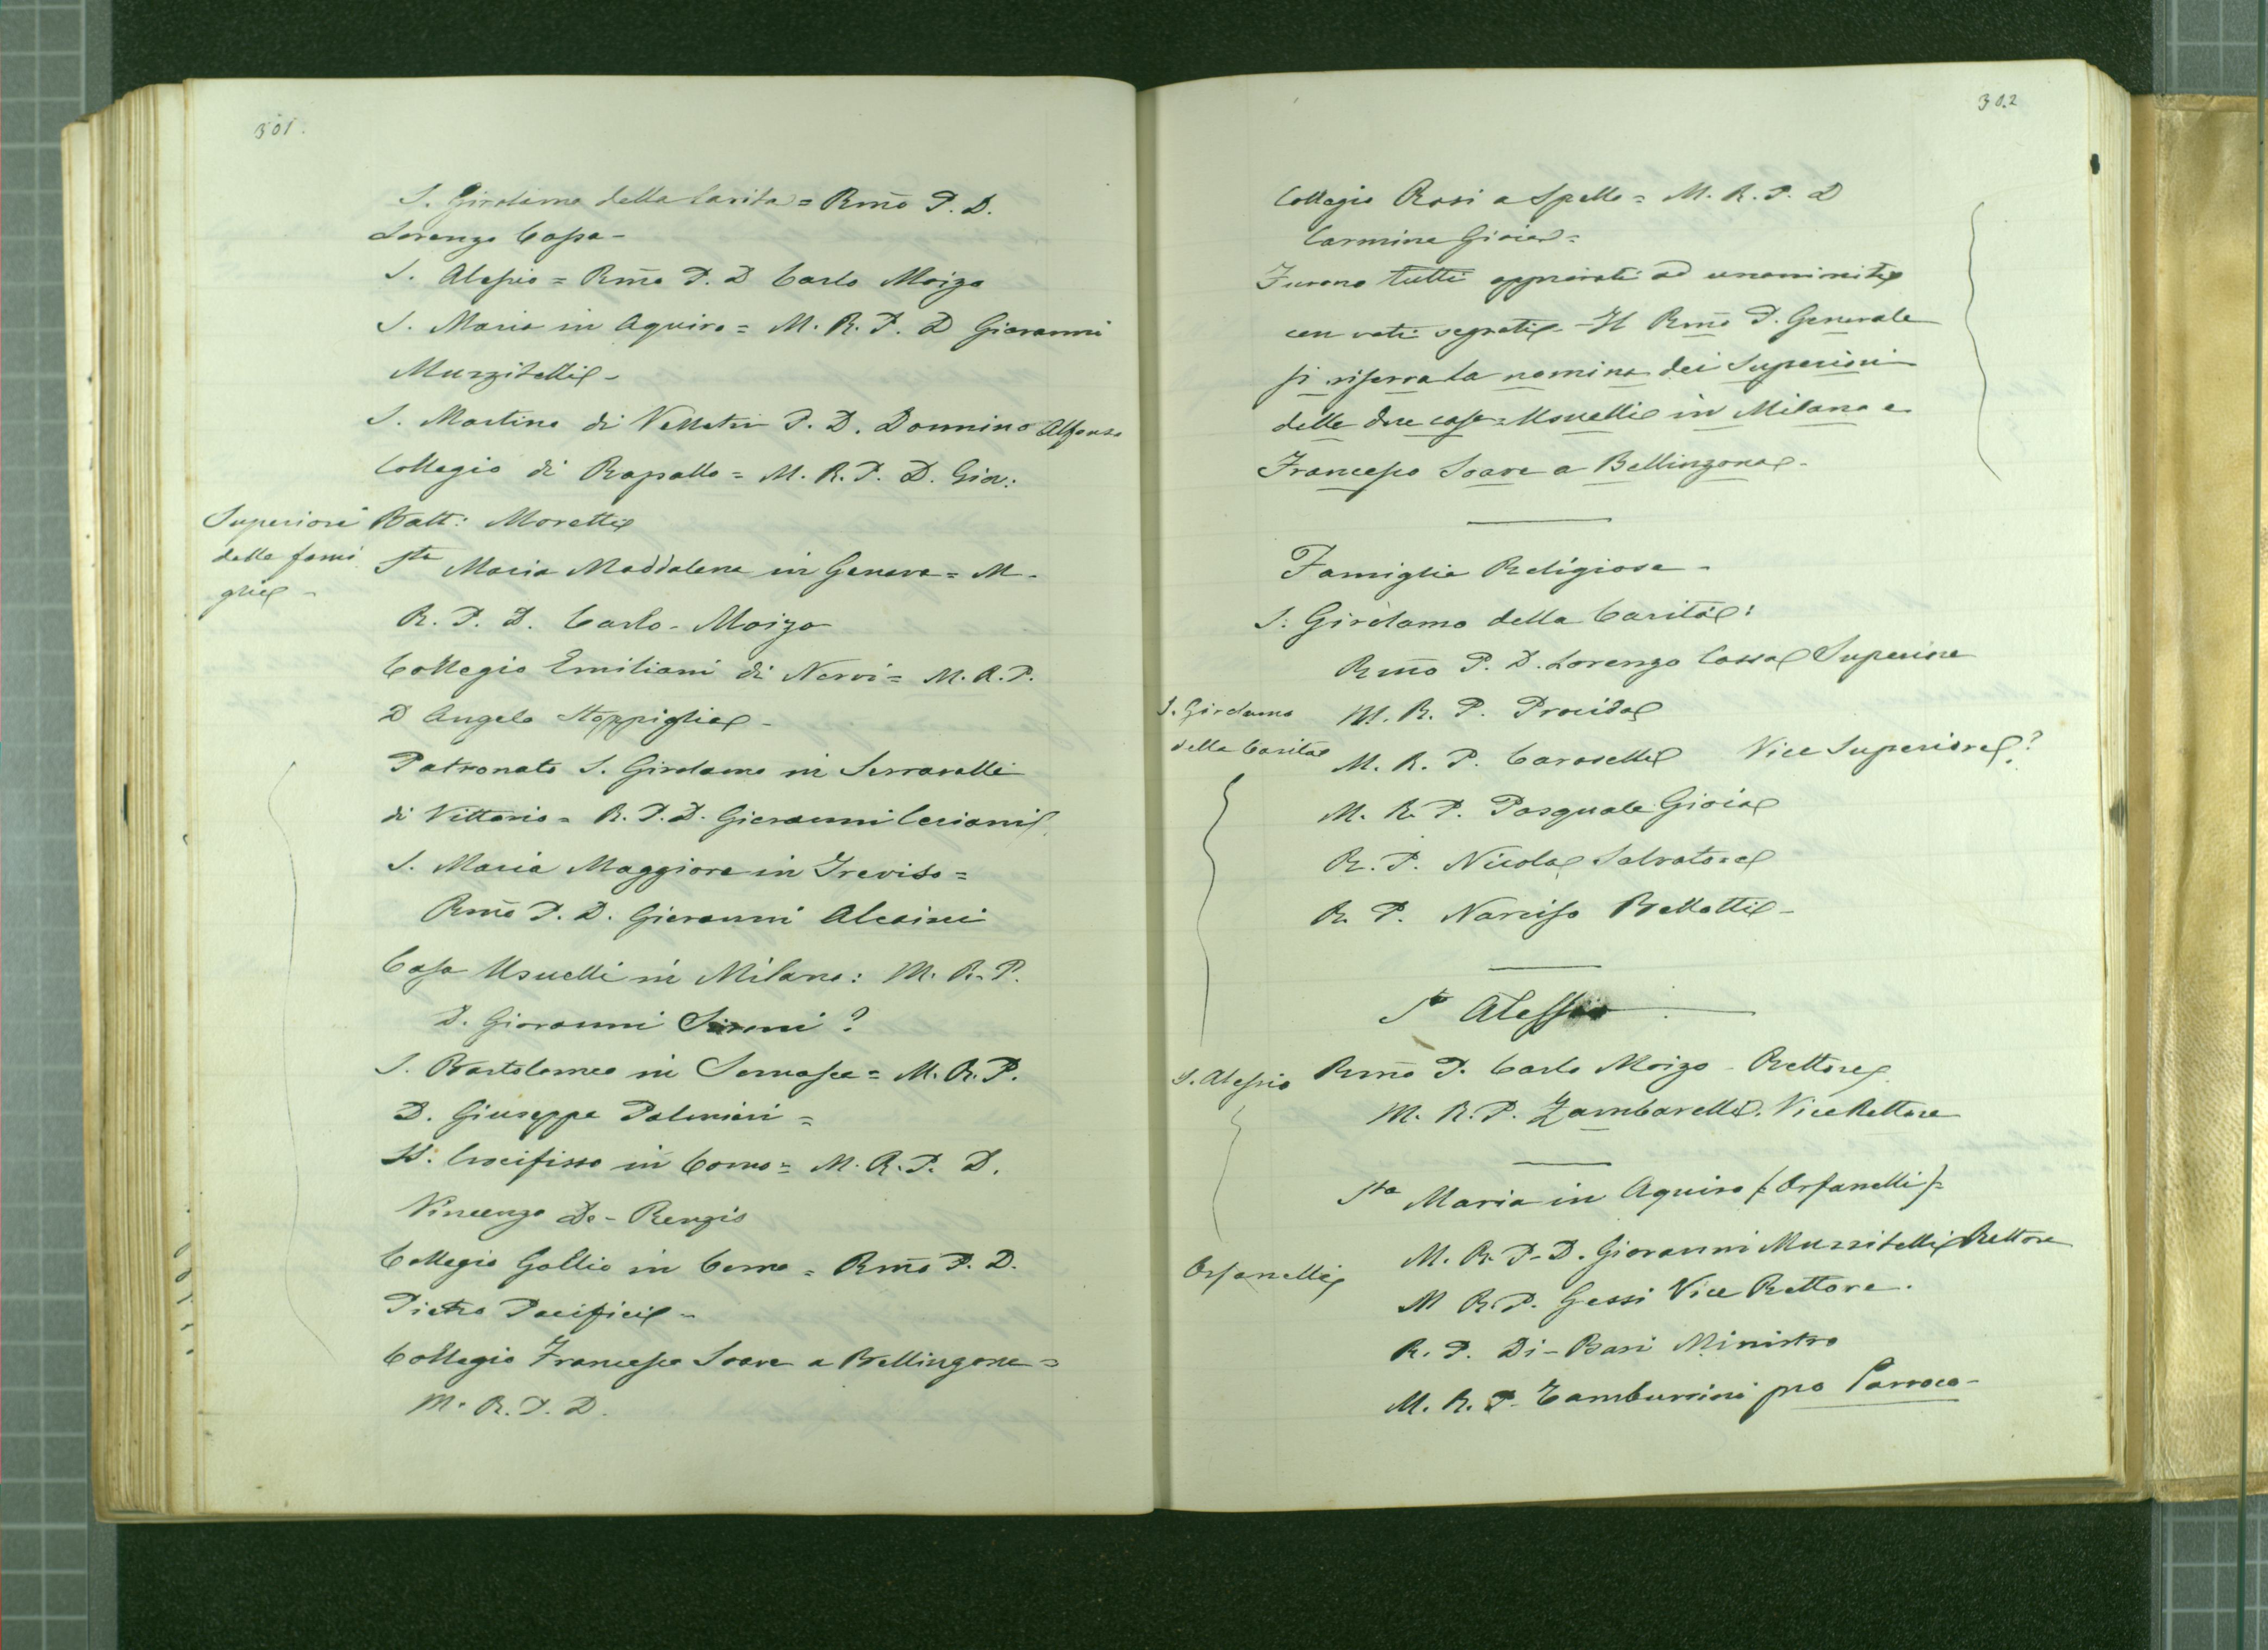 301.
S. Girolamo della Carita = Rmo P. D.
Lorenzo Cossa -
S. Alessio = Rmo P. D Carlo Moizo
S. Maria in Aquiro = M. R. P. D Giovanni
Muzzitelli -
S. Martino di Velletri P. D. Donnino Alfonso
Collegio di Rapallo = M. R. P. D. Giov:
Superiori
delle fami
glie -
Batt: Moretti
Sta Maria Maddalena in Genova = M.
R. P. D. Carlo - Moizo
Collegio Emiliani di Nervi = M. R. P.
D Angelo Stoppiglia -
Patronato S. Girolamo in Serravalle
di Vittorio = R. P. D. Giovanni Ceriani
S. Maria Maggiore in Treviso =
Rmo P. D. Giovanni Alcaini
Casa Usuelli in Milano: M. R. P.
D. Giovanni ?
S. Bartolomeo in Somasca = M. R. P.
D. Giuseppe Palmieri =
SS. Crocifisso in Como = M. R. P. D.
Vincenzo De-Renzis
Collegio Gallio in Como = Rmo P. D.
Pietro Pacifici -
Collegio Francesco Soave a Bellinzona =
M. R. P. D.
302
Collegio Rosi a Spello = M. R. P. D
Carmine Gioia =
Furono tutti approvati ad unanimità
con voti segreti - Il Rmo P. Generale
si riserva la nomina dei Superiori
delle due case = Usuelli in Milano e
Francesco Soave a Bellinzona -
Famiglie Religiose -
S. Girolamo della Carità:
Rmo P. D. Lorenzo Cossa Superiore
S. Girolamo
della Carità
M. R. P. Procida
M. R. P. Caroselli Vice Superiore?
M. R. P. Pasquale Gioia
R. P. Nicola Salvatore
R. P. Narciso Bellotti -
St Alessio
S. Alessio
Rmo P. Carlo Moizo - Rettore
M. R. P. Zambarelli. Vice Rettore
Sta Maria in Aquiro (Orfanelli) =
Orfanelli
M. R. P. D. Giovanni Muzzitelli Rettore
M R. P. Gessi Vice Rettore.
R. P. Di-Bari Ministro
M. R. P. Tamburrini pro Parroco -